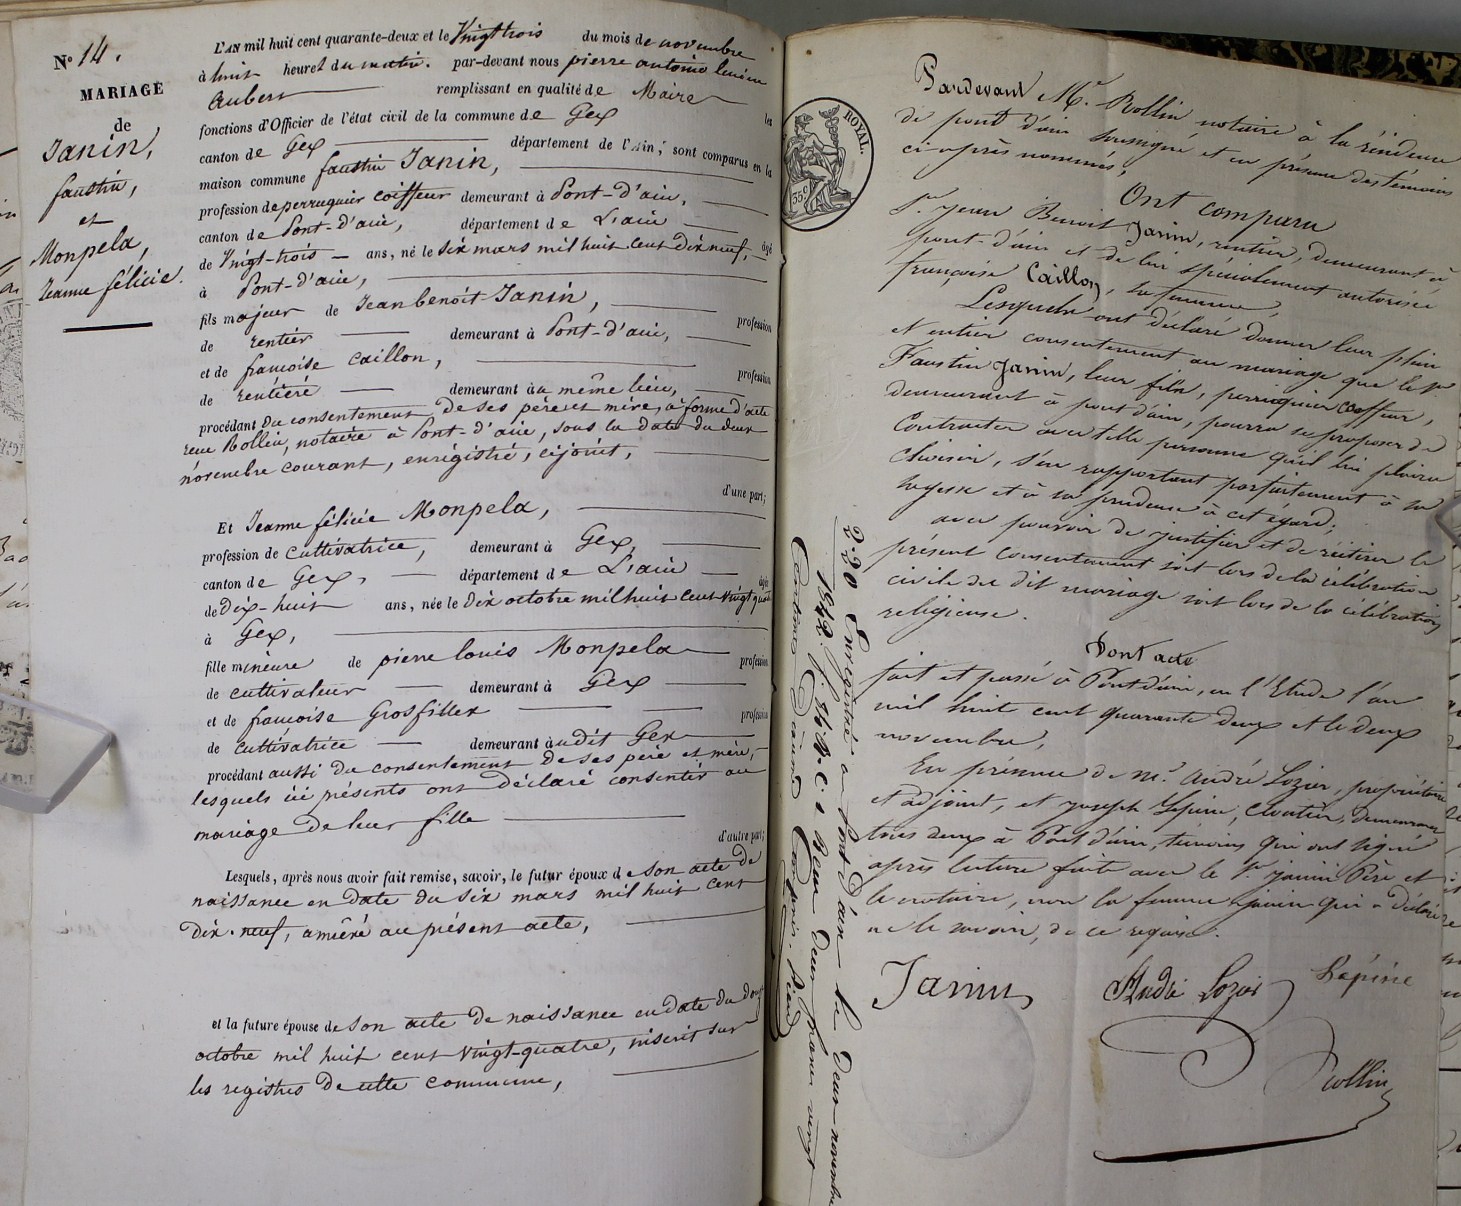 N° 14.
MARIAGE
de
Janin,
faustin,
et
Monpela,
Jeanne félicie.
L'AN mil huit cent quarante-deux et le Vingt trois du mois de novembre
à huit heures du matin. par-devant nous pierre antoine
Aubert remplissant en qualité de Maire les
fonctions d'Officier de l'état civil de la commune de Gex
canton de Gex département de l'Ain; sont comparus en la
maison commune faustin Janin,
profession de perruquier coiffeur demeurant à Pont-d'ain,
canton de Pont-d'ain, département de L'ain âgé
de Vingt-trois ans, né le six mars mil huit cent dix neuf,
à Pont-d'ain,
fils majeur de Jean benoit Janin, profession
de rentier demeurant à Pont-d'ain,
et de francoise Caillon, profession
de rentière demeurant au même lieu,
procédant du consentement de ses père et mère, à forme d'acte
reçu Rollin, notaire à Pont-d'ain, sous la date du deux
novembre courant, enrégistré, cijoint,
d'une part;
Et Jeanne félicie Monpela,
profession de cultivatrice, demeurant à Gex,
canton de Gex, département de L'ain âgée
de dix-huit ans, née le dix octobre mil huit cent vingt quatre
à Gex,
fille mineure de pierre louis Monpela profession
de cultivateur demeurant à Gex
et de francoise Grosfillex profession
de cultivatrice demeurant audit Gex
procédant aussi du consentement de ses père et mère,
lesquels ici présents ont déclaré consentir au
mariage de leur fille
d'autre part;
Lesquels, après nous avoir fait remise, savoir, le futur époux de son acte de
naissance en date du six mars mil huit cent
dix-neuf, au présent acte,
et la future épouse de son acte de naissance en date du
octobre mil huit cent vingt-quatre, inscrit sur
les registres de cette commune,
ROYAL.
35c
Pardevant Me. Rollin notaire à la résidence
de pont d'ain soussigné et en présence des témoins
ci-après nommés,
Ont comparu
Sr. Jean Benoit Janin, rentier, demeurant à
pont-d'ain et de lui spécialement autorisée
françoise Caillon, sa femme,
Lesquels ont déclaré donner leur plein
et entier consentement au mariage que le Sr
Faustin Janin, leur fils, perruquier coeffeur,
demeurant à pont d'ain, pourra se proposer de
contracter avec telle personne qu'il lui plaira
choisir, s'en rapportant parfaitement à sa
sagesse et à sa prudence à cet égard;
avec pouvoir de justifier et de réitérer le
présent consentement soit lors de la célébration
civile du dit mariage soit lors de la célébration
religieuse.
Dont acte
fait et passé à Pont d'ain, en l'Etude l'an
mil huit cent quarante deux et le deux
novembre,
En présence de Mr. André Lozier, propriétaire
et adjoint, et Joseph Lépine, cloutier, demeurant
tous deux à Pont d'ain, témoins qui ont signé
après lecture faite avec le Sr Janin Père et
le notaire, non la femme Janin qui a déclaré
ne le savoir, de ce requise.
Janin André Lozier Lépine
Rollin
2.20 Enregistré à Pont d'ain le deux novembre
1842. f. Reçu deux francs vingt
centimes